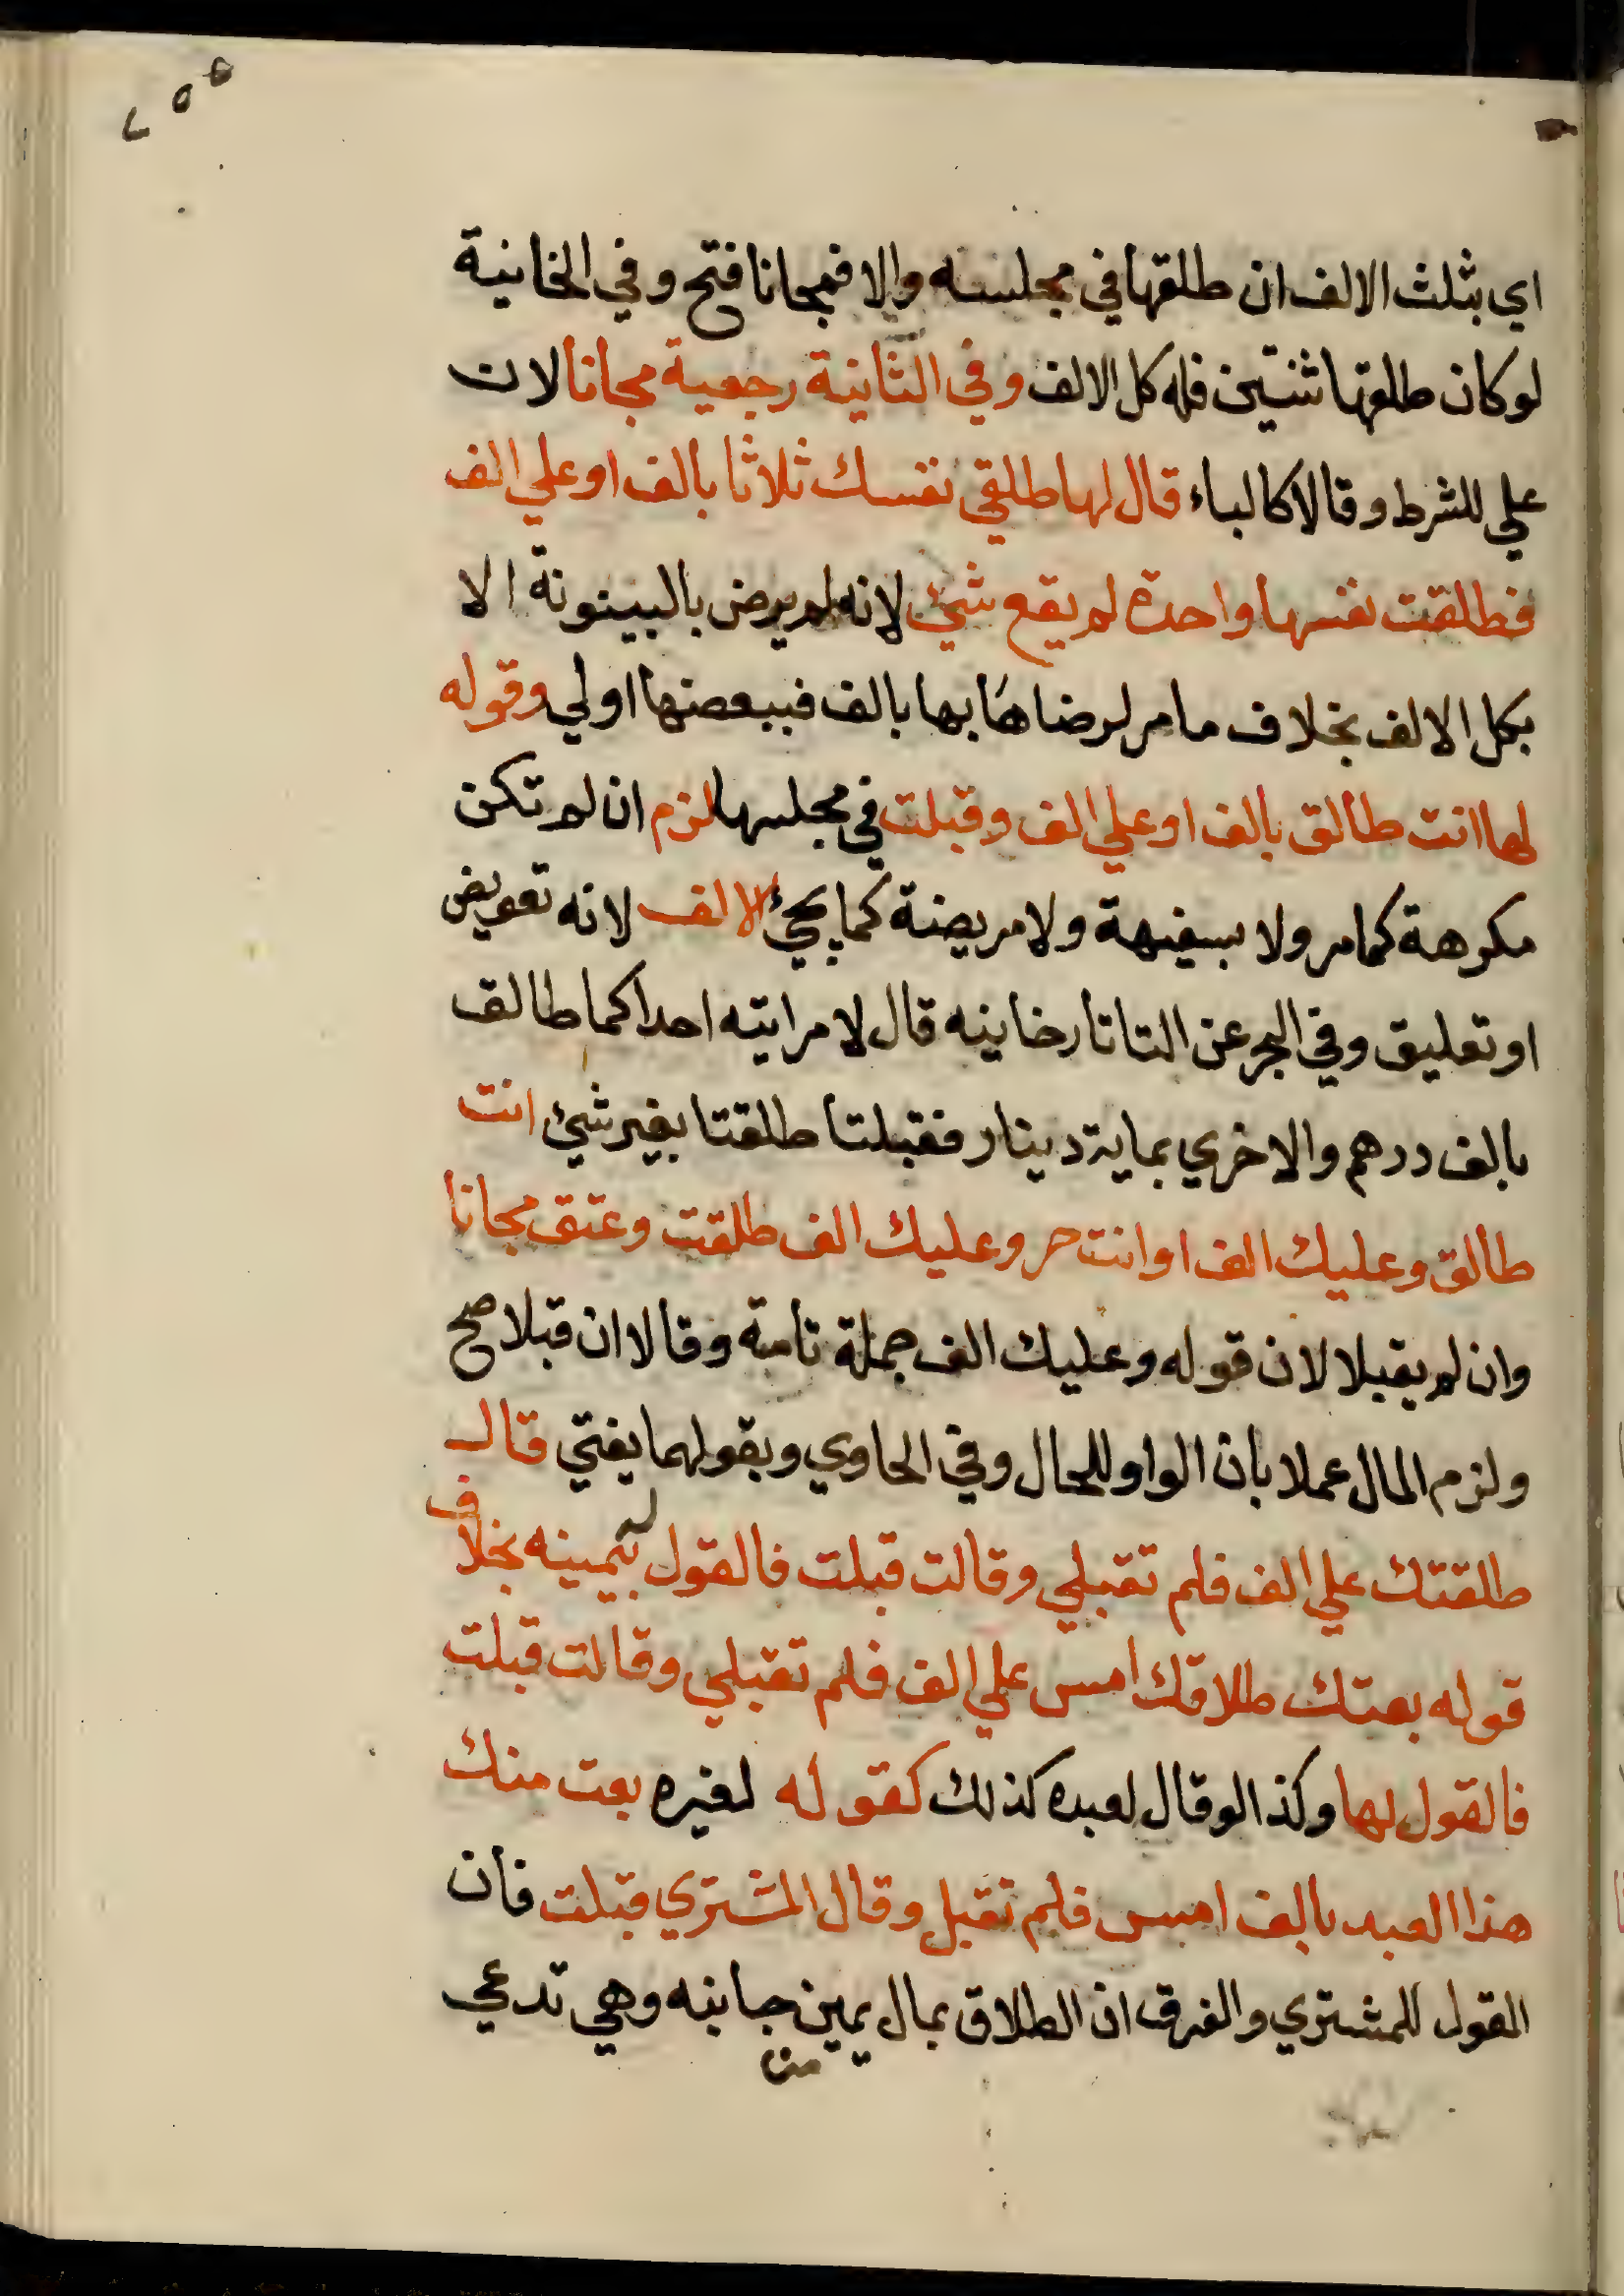 ٢٥٥
اي بثلث الالف ان طلقها في مجلسه والا فمجانا فتح وفي الخانية
لو كان طلقها ثنتين فله كل الالف وفي الثانية رجعية مجانا لان
علي للشرط وقالا كالباء قال لها طلقي نفسك ثلاثا بالف او علي الف
فطلقت نفسها واحدة لم يقع شيئ لانه لم يرض بالبينونة الا
بكل الالف بخلاف ما مر لرضاها بها بالف فببعضها اولي وقوله
لها انت طالق بالف او علي الف وقبلت في مجلسها لزم ان لم تكن
مكرهة كما مر ولا سفيهة ولا مريضة كما يجيئ الالف لانه تعويض
او تعليق وفي البحر عن التاتارخاينه قال لامراتيه احداكما طالق
بالف درهم والاخري بماية دينار فقبلتا طلقتا بغير شيئ انت
طالق وعليك الف او انت حر وعليك الف طلقت وعتق مجانا
وان لم يقبلا لان قوله وعليك الف جملة تامة وقالا ان قبلا صح
ولزم المال عملا بان الواو للحال وفي الحاوي وبقولهما يفتي قال
طلقتك علي الف فلم تقبلي وقالت قبلت فالقول له بيمينه بخلاف
قوله بعتك طلاقك امس علي الف فلم تقبلي وقالت قبلت
فالقول لها وكذا لو قال لعبده كذلك كقوله لغيره بعت منك
هذا العبد بالف امس فلم تقبل وقال المشتري قبلت فان
القول للمشتري والفرق ان الطلاق بمال يمين من جانبه وهي تدعي